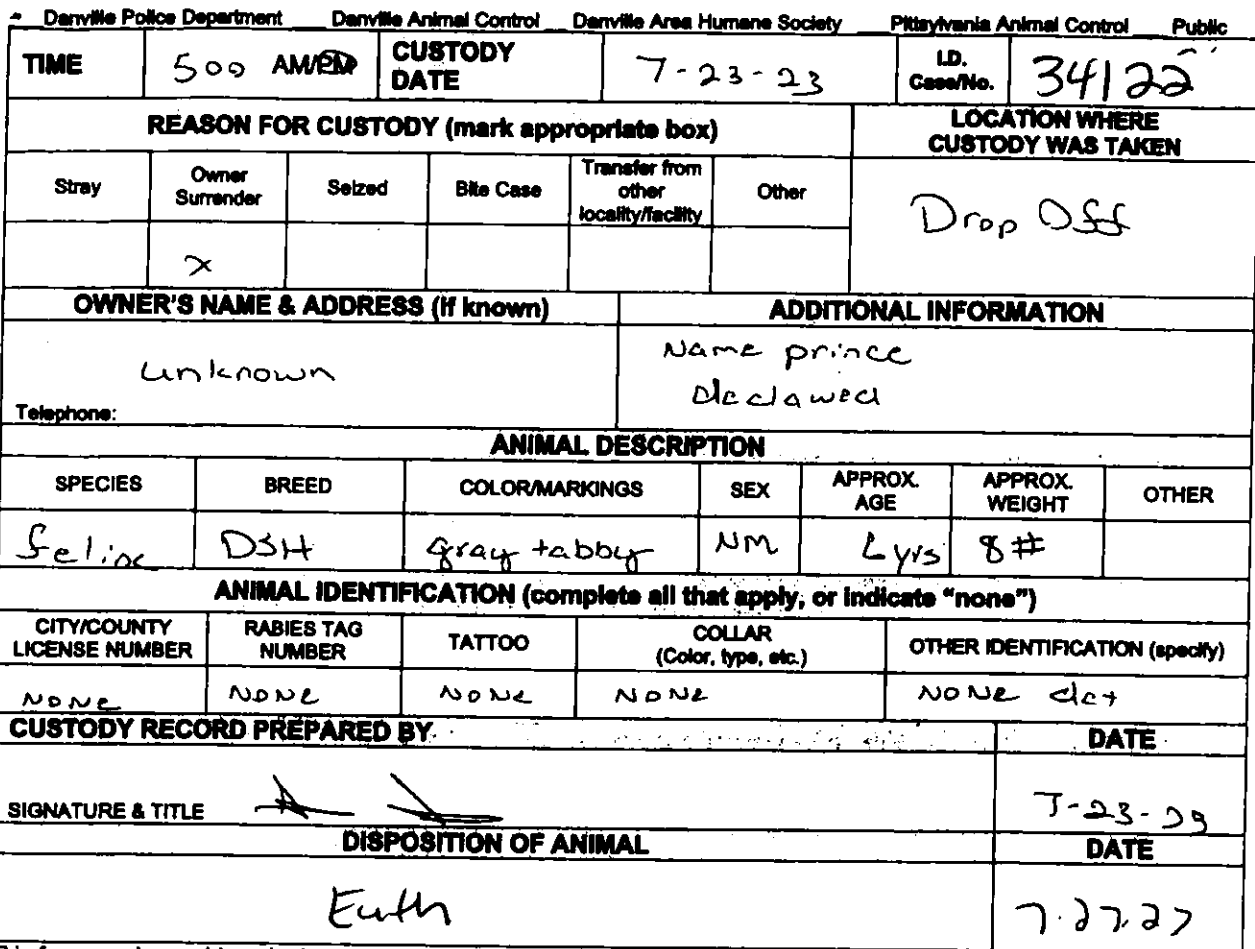 Danville Police Department Danville Animal Control Danville Area Humane Society Pittsylvania Animal Control Public
TIME 500 AM/PM CUSTODY DATE 7-23-23 I.D. Case/No. 34122
REASON FOR CUSTODY (mark appropriate box) LOCATION WHERE CUSTODY WAS TAKEN
Stray Owner Surrender Seized Bite Case Transfer from other locality/facility Other
x
Drop Off
OWNER'S NAME & ADDRESS (if known) ADDITIONAL INFORMATION
unknown
Name prince
Declawed
Telephone:
ANIMAL DESCRIPTION
SPECIES BREED COLOR/MARKINGS SEX APPROX. AGE APPROX. WEIGHT OTHER
feline DSH gray tabby NM 6 yrs 8#
ANIMAL IDENTIFICATION (complete all that apply, or indicate "none")
CITY/COUNTY LICENSE NUMBER RABIES TAG NUMBER TATTOO COLLAR (Color, type, etc.) OTHER IDENTIFICATION (specify)
NONE NONE NONE NONE NONE
CUSTODY RECORD PREPARED BY DATE
SIGNATURE & TITLE 7-23-
DISPOSITION OF ANIMAL DATE
Euth 7.27.27